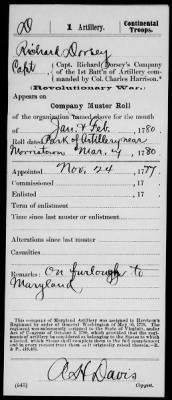 D | 1 Artillery. | Continental Troops.
Richard Dorsey
Capt , Capt. Richard Dorsey's Company of the 1st Batt'n of Artillery commanded by Col. Charles Harrison.*
(Revolutionary War.)
Appears on
Company Muster Roll
of the organization named above for the month
of Jan & Feb. , 1780.
Roll dated Park of Artillery near
Morristown Mar. 4 , 1780.
Appointed Nov. 24 , 1777.
Commissioned , 17 .
Enlisted , 17 .
Term of enlistment
Time since last muster or enlistment
Alterations since last muster
Casualties
Remarks: On furlough to
Maryland
*This company of Maryland Artillery was assigned to Harrison's
Regiment by order of General Washington of May 30, 1778. The
regiment was subsequently assigned to the State of Virginia, under
Act of Congress of October 3, 1780, which provided that the regi-
mental artillery be considered as belonging to the States to which
A H Davis
(545) Copyist.